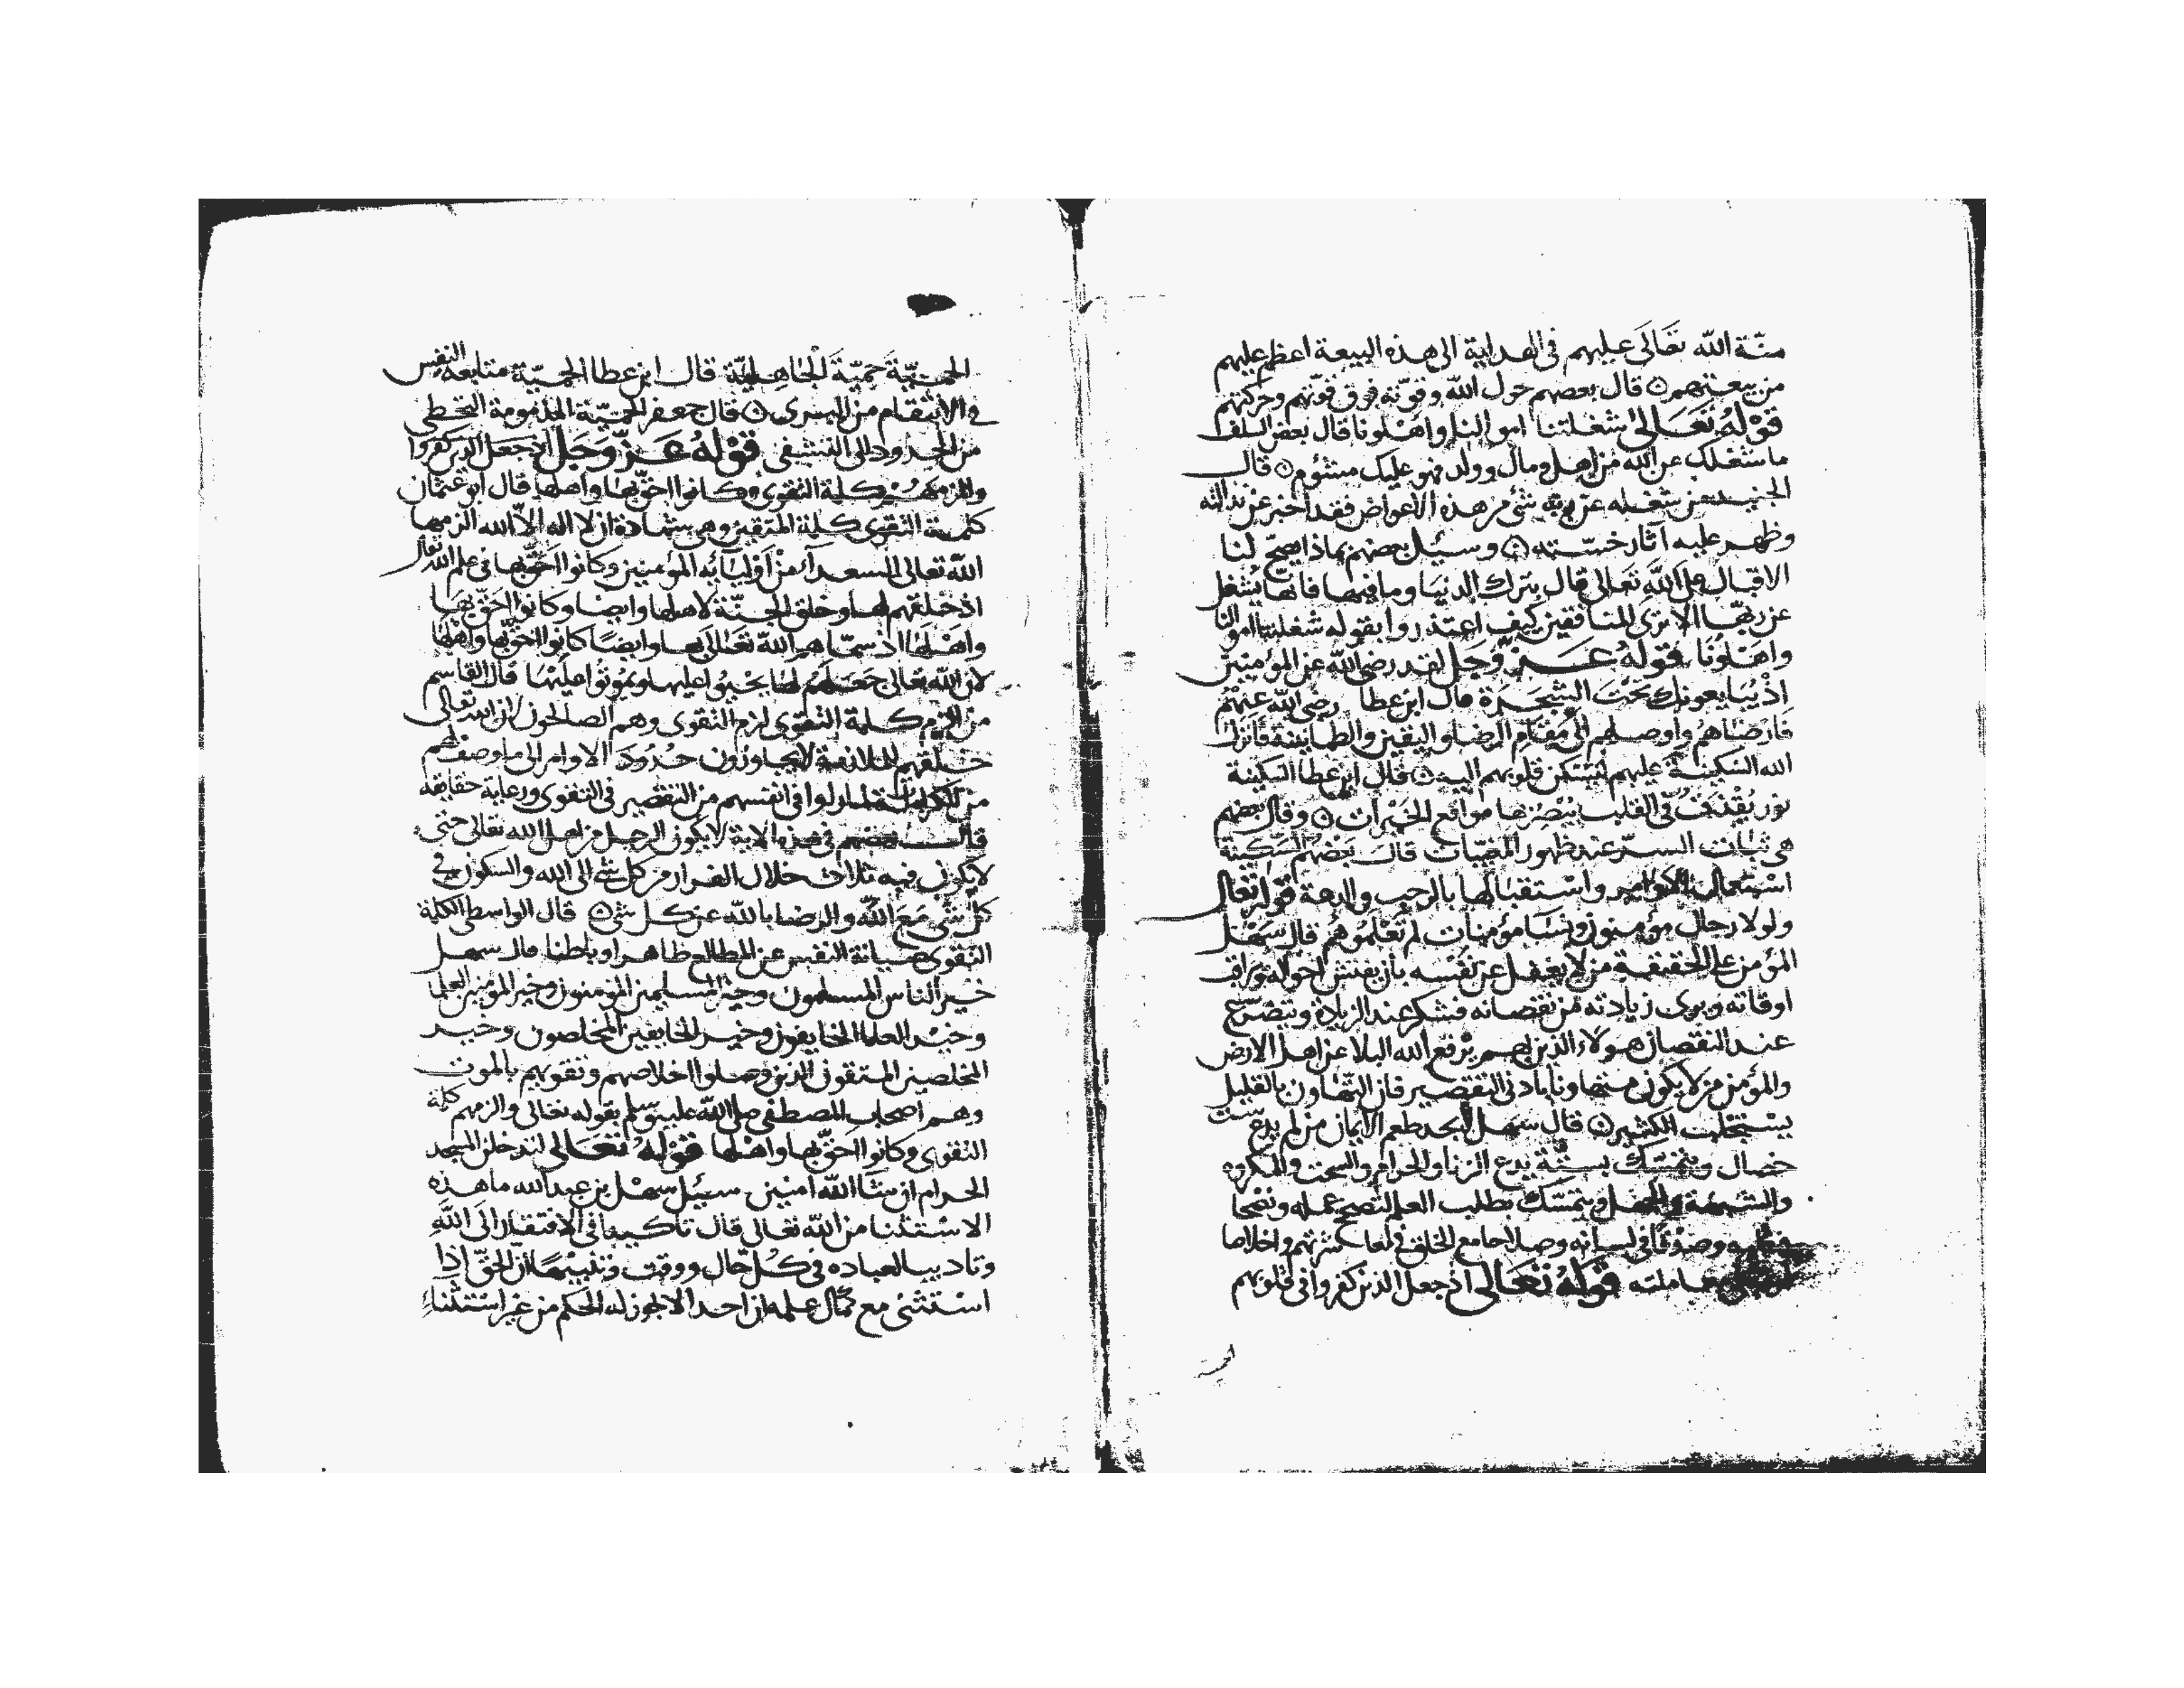 منّة الله تعَالَى عليهم فى الهداية الى هذه البيعة اعظم عليهم
من بيعتهم ۞ قال بعضهم حول الله وقوّته فوق قوّتهم وحركتهم
قَوْلهُ تَعَالىٰ شغلتنا اموالنا واهْلونا قال بعض السلف
ما شغلك عن الله من اهل ومال وولد فهو عليك مشئوم ۞ قال
الجنيد من شغله عن ربه شئ من هذه الاعراض فقد اخبر عن نذالته
وظهر عليه آثار خسّته ۞ وسئيل بعضهم بماذا يصحّ لنا
الاقبال على الله تَعالى قال بترك الدنيَا وما فيها فانها يُشغل
عن ربّها الا ترى للمنافقين كيف اعتذروا بقوله شغلتنا اموالنا
واهْلونَا قولهُ عَزّ وَجَل لقد رضى الله عن المؤمنين
اذْ يُبَايعونك تَحْتَ الشجَرَة قال ابن عطا رضى الله عنهُمْ
فَارضَاهُم وَاوصلهم الى مَقَام الرضا واليقين والطمانينة فانزل
الله السَكينَة عليهم لتسْكن قلوبهم اليه ۞ قال ابن عطا السَكينة
نور يُقْذَفُ فى القلب يبْصِرُ بها مواقع الخَيْرات ۞ وقال بعضهم
هى ثبَات السرّ عند ظهور المغيّبات قال بَعْضهُم السَّكينَة
اسْتعمال الاوامر واسْتقبَالها بالرحب والدعة قولهُ تعَالى
ولولا رجال مؤمنون ونسَا مؤمنات لم تعْلموُهُم قال سَهْل
المؤمن على الحقيقة من لا يغفل عن نَفْسه بان يفتش احواله ويراقب
اوقاته ويرى زيادته من نقصانه فيشكر عند الزيادة ويتضرّع
عند النقصان هولاء الذين بهم يرْفع الله البلا عن اهل الارض
والمؤمن من لا يكون متهاونا بادنى التقصير فان التّهاون بالقليل
يستجْلب الكثير ۞ قال سهل لا يجد طعم الايمان من لم يدع ست
خصال ويتمسّك بستّة يدع الزنا والحرام والسحت والمكروه
والشبهة والجهل ويتمسّك بطلب العلم لتصحيح عمله ونصْحا
وصدْقًا فى لسانه وصلاحا مع الخلق فى معاشرتهم واخلاصا
معاملته قَوْلهُ تعَالى اذ جعل الذين كفروا فى قلوبهم
الحميّة حَميّةَ الْجَاهِليّة قال ابن عطا الحميّة متابعة النفس
فى الانتقام من اليسرى ۞ قال جعفر الحميّة المذمومة التخطى
من الحدود الى التشفى قَوْلهُ عَزّ وَجَل اذ جعل الذين كفروا
والزمهُمْ كلمة التقوى وكانوا احقّ بهَا واهلها قال ابو عثمان
كلمة التقوى كلمة المتقين وهى شهادة ان لا اله الاّ الله الزمها
الله تعالى السعدآء من اَوْليَائه المؤمنين وكانوا احَقّ بها فى علم الله تعالى
اذ خلقهم لها وخلق الجنّة لاهلها وايضا وكانوا احَقّ بهَا
واهْلَهَا اذ سمّاهم الله تعَالى بها وايضًا كانوا احَقّ بها واهْلهَا
لانّ الله تعَالى جَعَلَهُم لهَا يحْيوُا عليها ويموُتوُا عليْهَا قال القاسم
من الزم كلمة التقوى لزم التقوى وهم الصالحون لان الله تعالى
خلقهم لا يجاوزون حُدُودَ الاوامر الى ما وصف لهم
من فى انفسهم من التقصير فى التقوى ورعاية حقايقه
قال بعضهم فى هذه الاية لا يكون الرجل من اهل الله تعالى حتى
لا يكون فيه ثلاث خلال الفرار من كل شئ الى الله والسكون فى
كلّ شئ مَعَ الله والرضا بالله عن كل شئ ۞ قال الواسطى الكلمة
التقوى صيانة النفس عن المطالع ظاهرا وباطنا قال سهل
خير الناس المسلمون وخير المسلمين المؤمنون وخير المؤمنين العلما
وخيْر العلما الخايفون وخير الخايفين المخلصون وخير
المخلصين المتقون الذين وصلوا اخلاصهم وتقويهم بالموت
وهم اصحاب المصطفى صلى الله عليه وسلم بقوله تعالى والزمهم كلمة
التقوى وكانوا احَقّ بها واهْلها قَوْلهُ تَعَالى لتدخلن المسجد
الحرام ان شَآ الله امنين سئيل سهْل بن عبد الله ما هذه
الاسْتثنا من الله تعالى قال تاكيدا فى الافتقار الَى اللهِ
وتاديبا لعباده فى كُل حَال ووقت وتنبيْهًا انّ الحَقّ اذا
اسْتثنى مع كمَال علمه ان احدا لا يجوز له الحكم من غير اسْتثناءِ